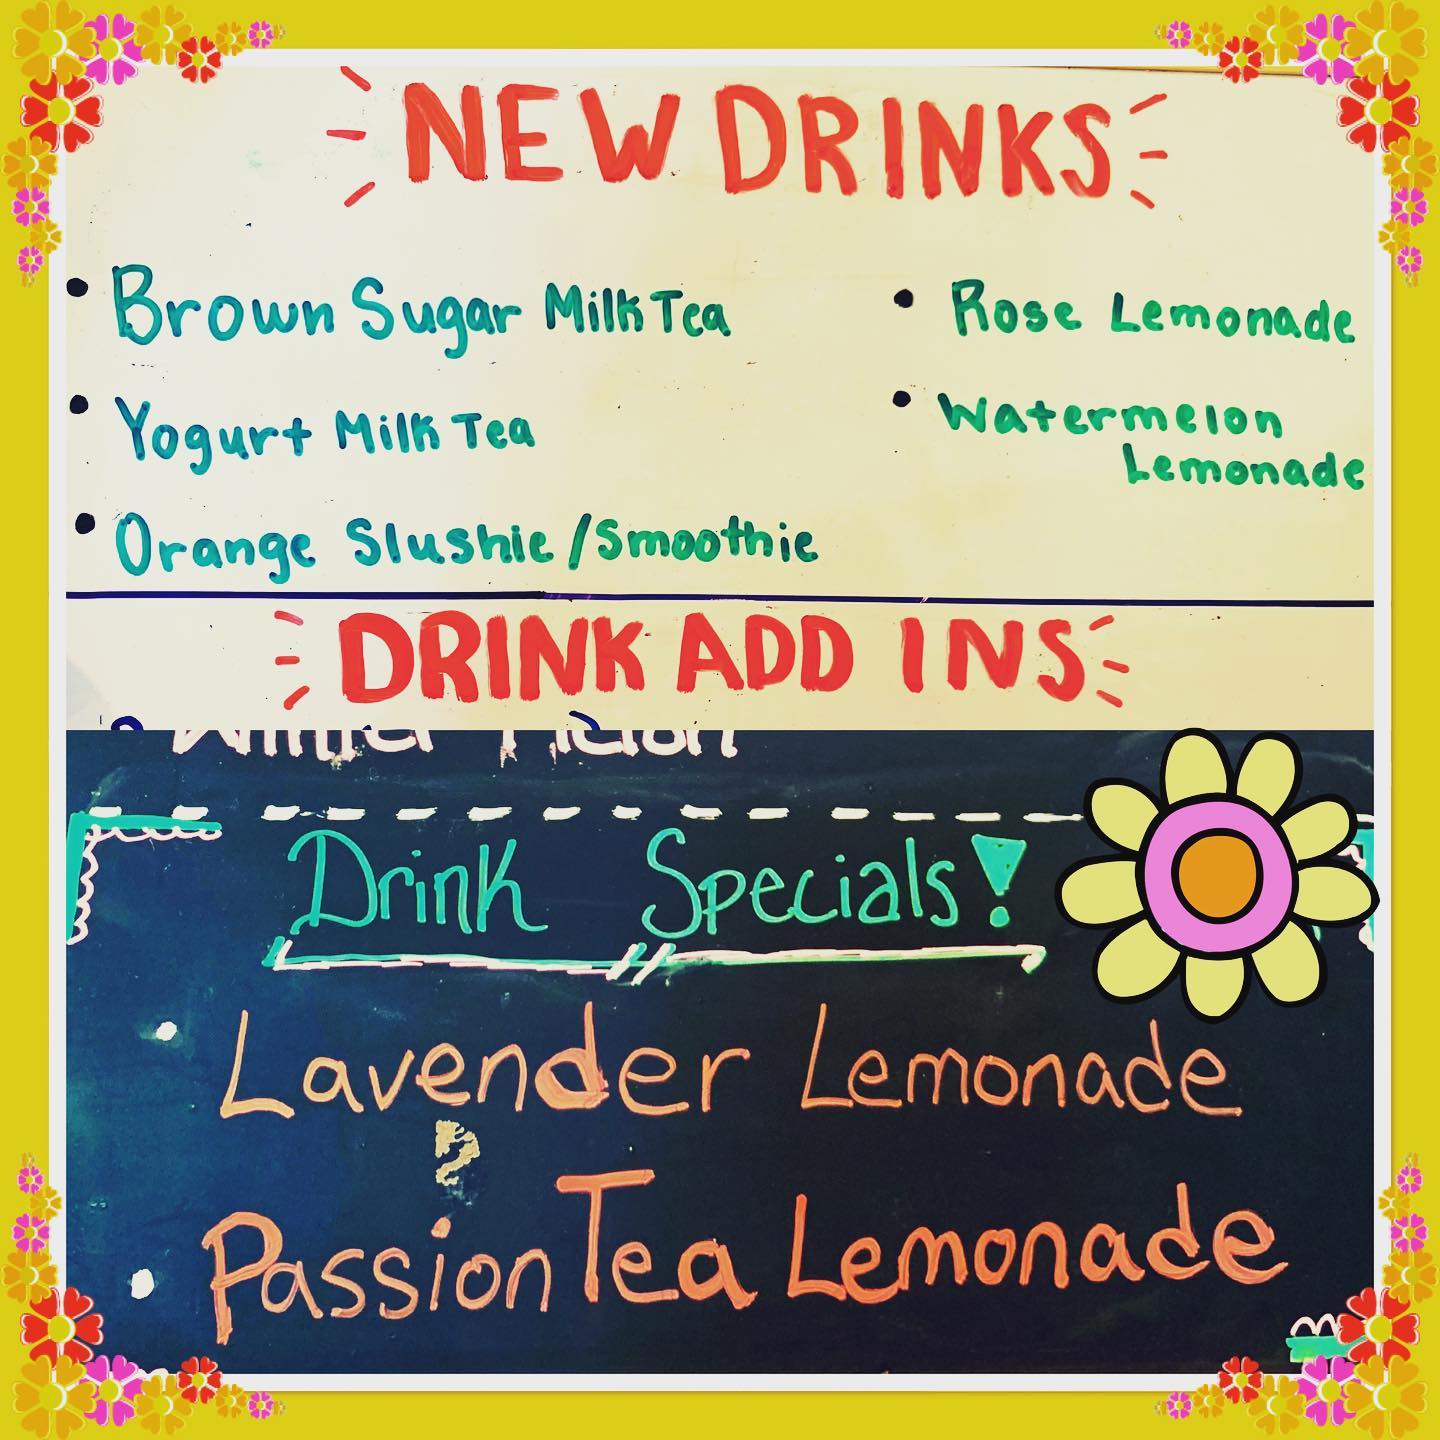 NEW DRINKS
• Brown Sugar Milk Tea
• Yogurt Milk Tea
• Orange Slushie/Smoothie
• Rose Lemonade
• Watermelon
Lemonade
DRINK ADD INS
Winter Melon
Drink Specials!
• Lavender Lemonade
• Passion Tea Lemonade